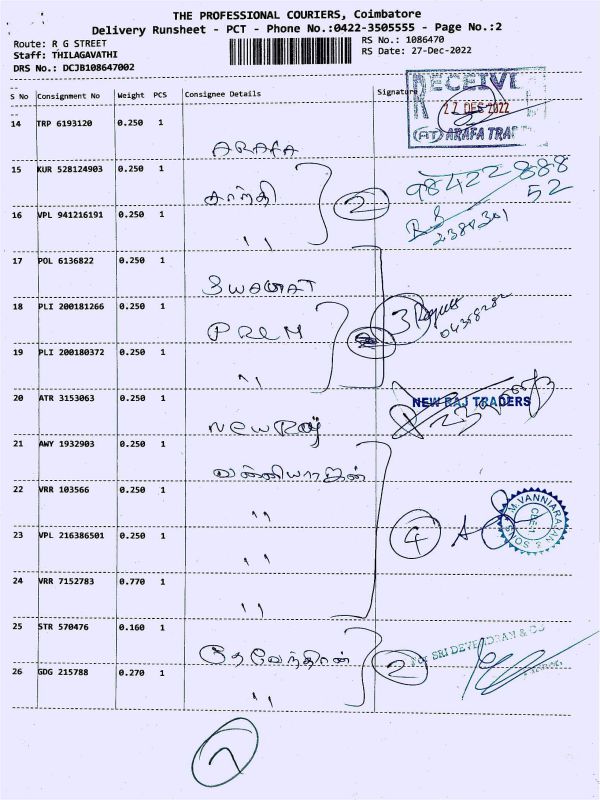 THE PROFESSIONAL COURIERS, Coimbatore
Delivery Runsheet - PCT - Phone No.:0422-3505555 - Page No.:2
Route: R G STREET
RS No.: 1086470
Staff: THILAGAVATHI
RS Date: 27-Dec-2022
DRS No.: DCJB108647002
S No Consignment No Weight PCS Consignee Details Signature
--
14 TRP 6193120 0.250 1 ARAFA
RECEIVE
27 DEC 2022
(AT) ARAFA TRA
15 KUR 528124903 0.250 1 காந்தி
2
98422 888
52
16 VPL 941216191 0.250 1 ''
2380301
17 POL 6136822 0.250 1 SWAGAT
18 PLI 200181266 0.250 1 PREM
3
19 PLI 200180372 0.250 1 ''
20 ATR 3153063 0.250 1 NEWRAJ
NEW RAJ TRADERS
21 AWY 1932903 0.250 1 வன்னியராஜன்
22 VRR 103566 0.250 1 ''
M.VANNIARAJAN & SONS
CBE-1
23 VPL 216386501 0.250 1 ''
4
24 VRR 7152783 0.770 1 ''
25 STR 570476 0.160 1 தேவேந்திரன்
2
For SRI DEVENDRAN & CO
26 GDG 215788 0.270 1 ''
7